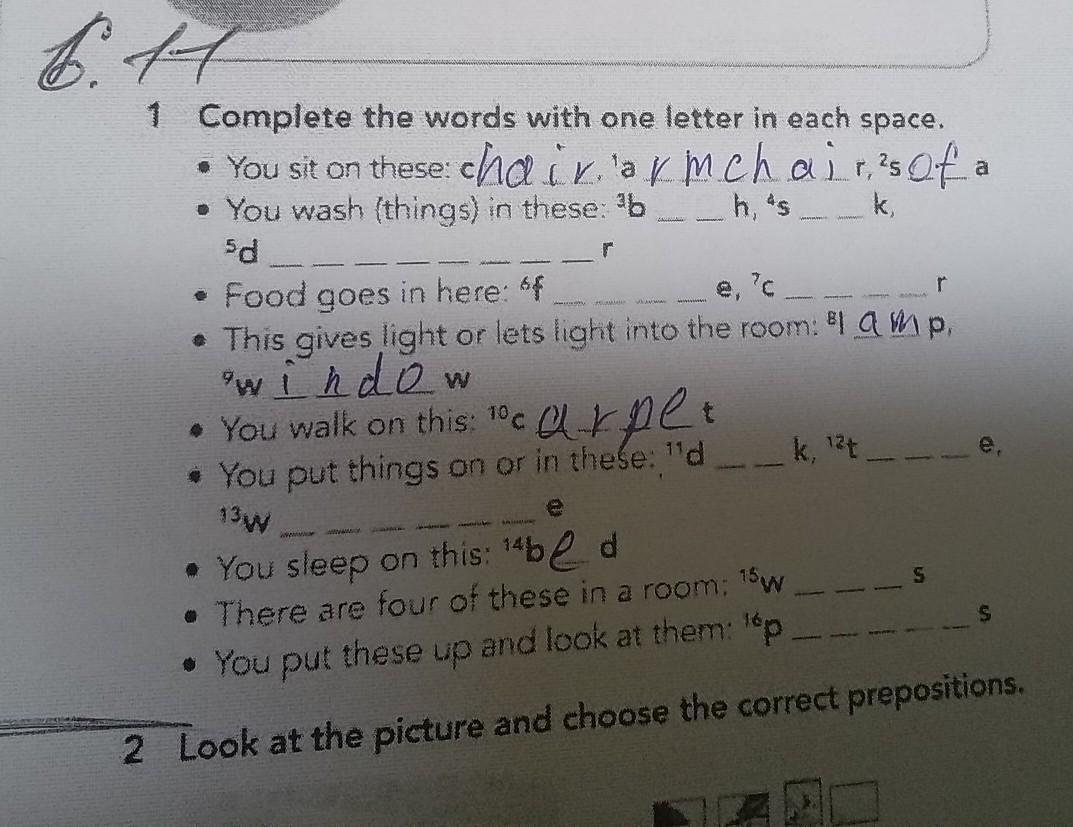 6.11
1 Complete the words with one letter in each space.
• You sit on these: chair, ¹armchair, ²sofa
• You wash (things) in these: ³b _ _ h, ⁴s _ _ k,
⁵d _ _ _ _ _ _ _ _ r
• Food goes in here: ⁶f _ _ _ _ e, ⁷c _ _ _ _ r
• This gives light or lets light into the room: ⁸lamp,
⁹window
• You walk on this: ¹⁰carpet
• You put things on or in these: ¹¹d _ _ k, ¹²t _ _ _ e,
¹³w _ _ _ _ _ _ e
• You sleep on this: ¹⁴bed
• There are four of these in a room: ¹⁵w _ _ _ s
• You put these up and look at them: ¹⁶p _ _ _ _ _ s
2 Look at the picture and choose the correct prepositions.